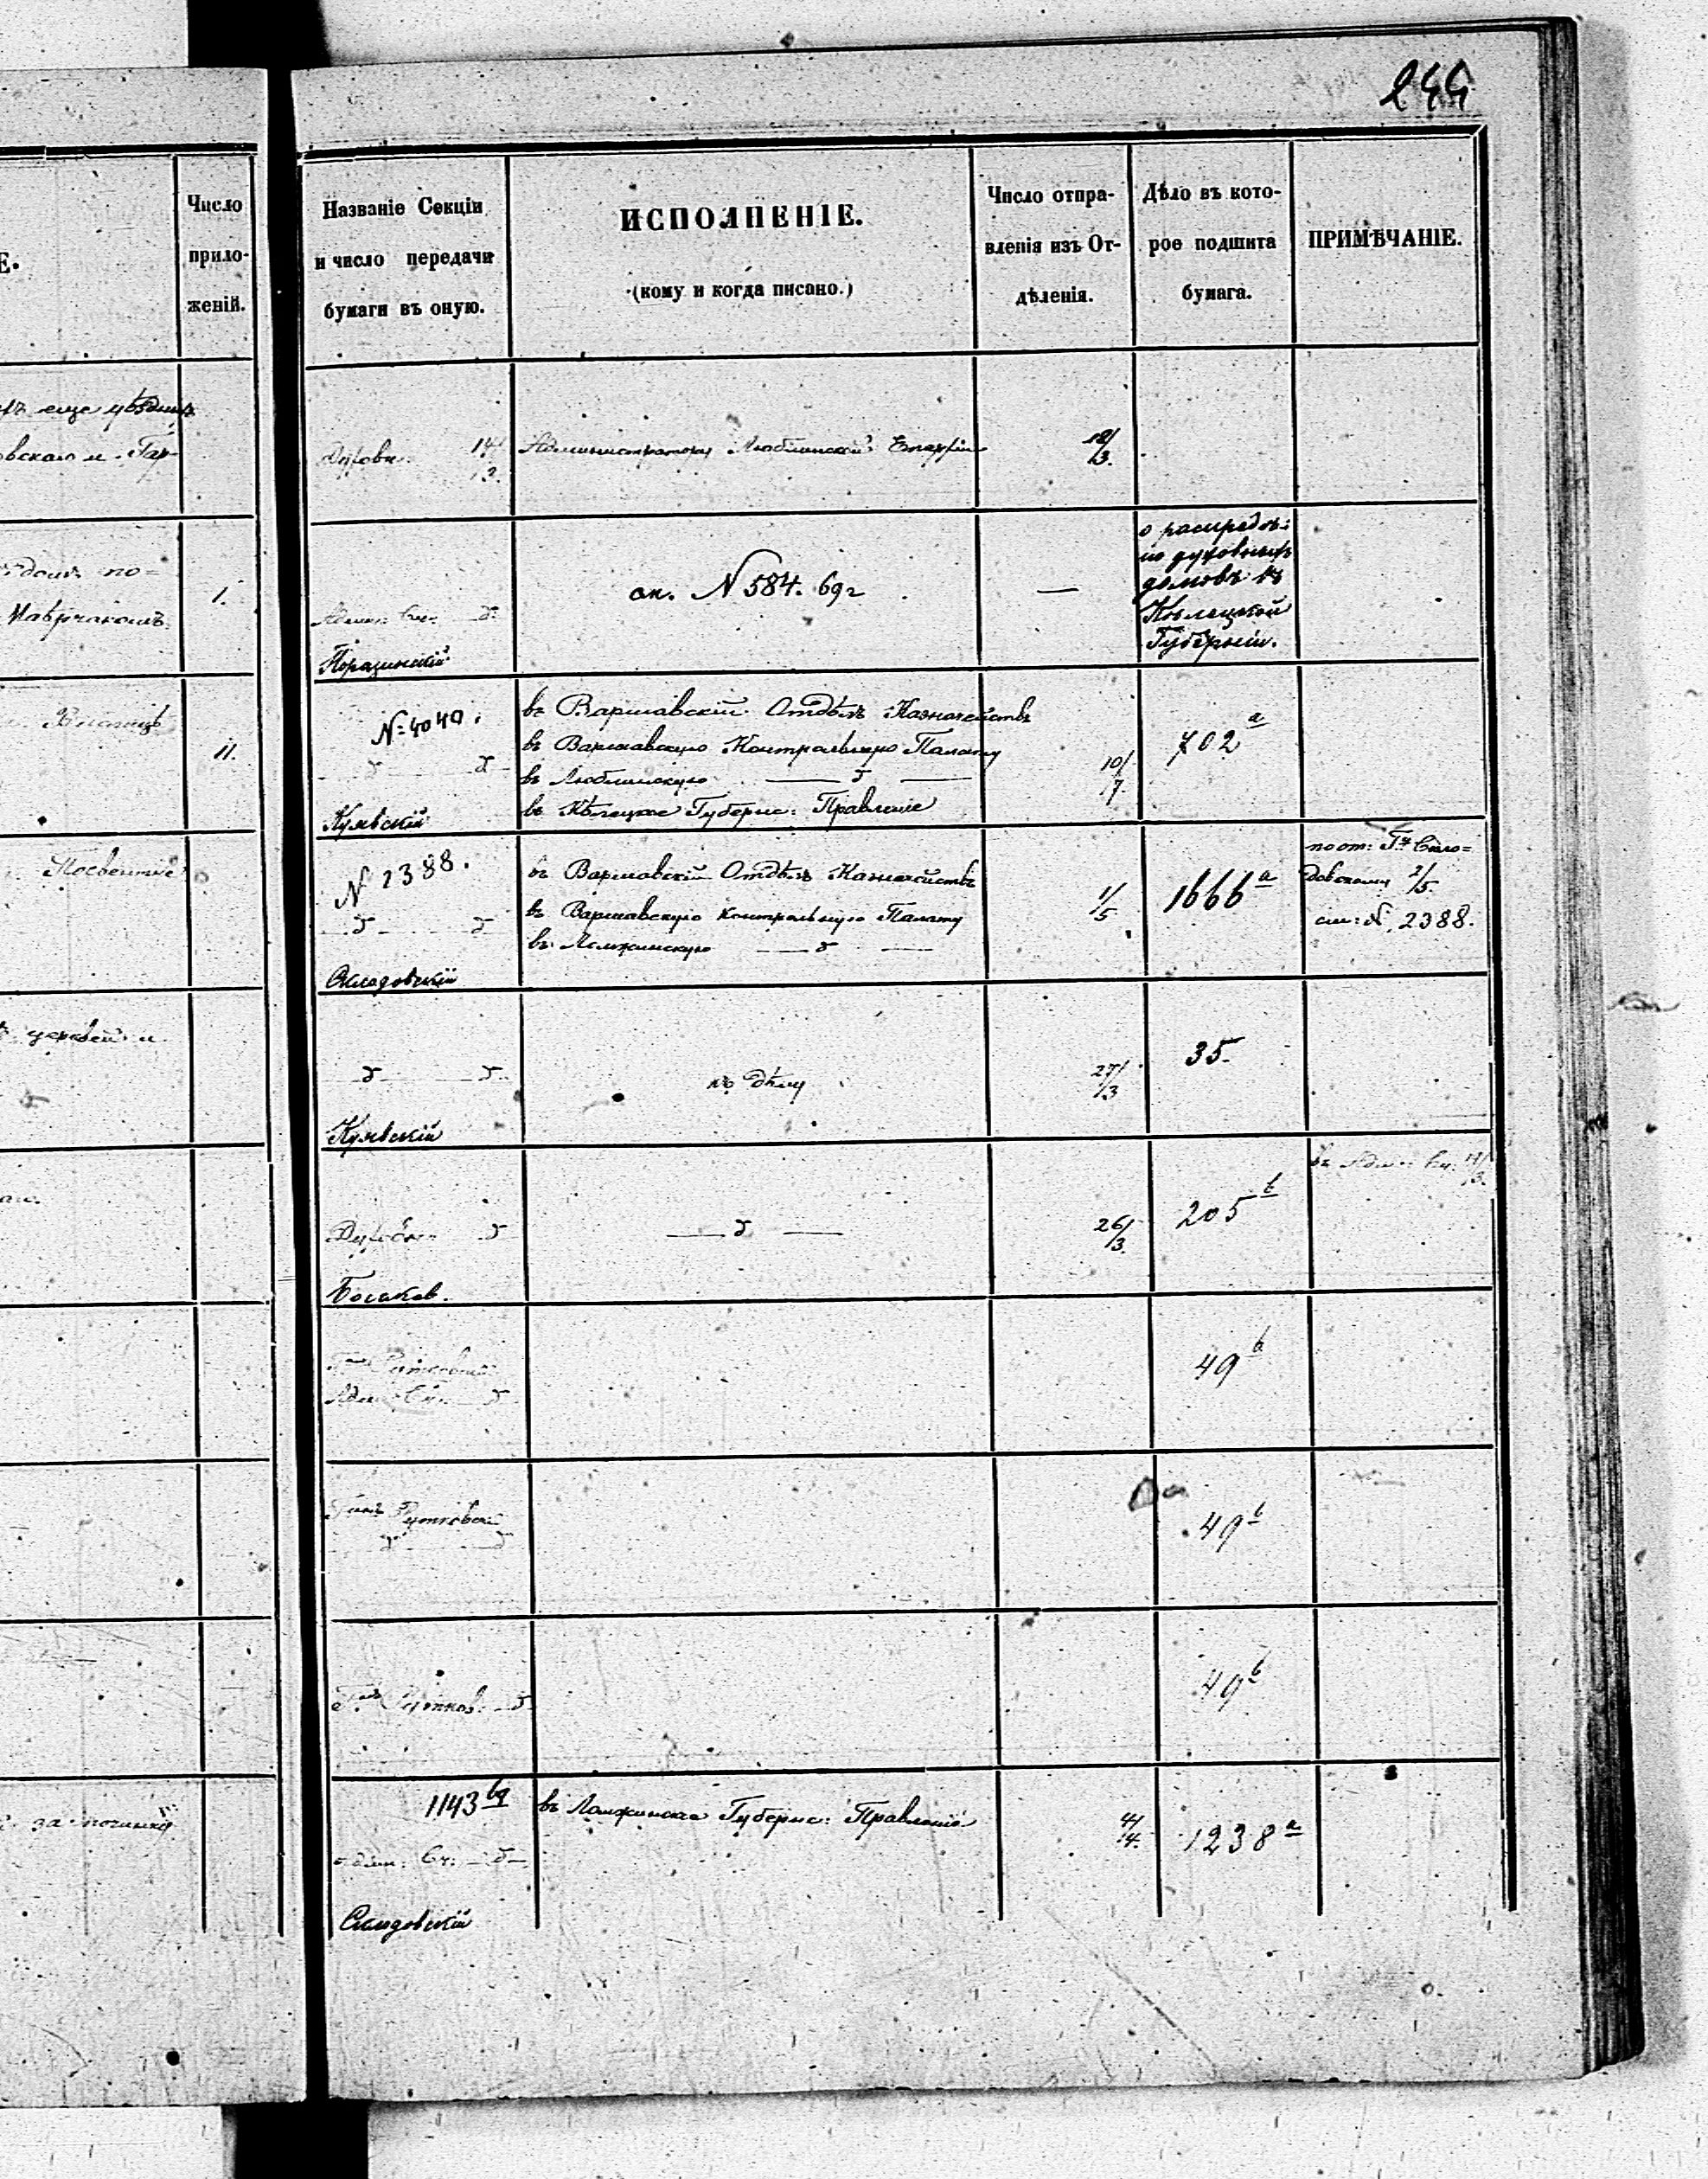 244
Е.
Число
прило-
женій.
Названіе Секціи
и число передачи
бумаги въ оную.
ИСПОЛНЕНІЕ.
(кому и когда писано.)
Число отпра-
вленія изъ От-
дѣленія.
Дѣло въ кото-
рое подшита
бумага.
ПРИМѢЧАНІЕ.
еще уѣздныхъ
вскаго и Гар-
Духовн. 14/3.
Администратору Люблинской Епархіи
18/3.
домъ по=
I.
Поразинскій
ок. N 584. 69 г
—
о распредѣ:
іи духовныхъ
домовъ въ
Кѣлецкой
Губерніи.
II.
N. 4040.
д д
Кулвскій
въ Варшавскій Отдѣлъ Казначействъ
въ Варшавскую Контрольную Палату
въ Люблинскую — д —
въ Кѣлецкое Губерн: Правленіе
10/7.
702 а
N 2388.
д д
Склодовскій
въ Варшавскій Отдѣлъ Казначействъ
въ Варшавскую контрольную Палату
въ Ломжинскую — д —
1/5
1666 а
по от: Гну Скло=
довскому 2/5.
см: N. 2388.
церквей и
д д
Кулвскій
къ дѣлу
27/3
35.
Духовн д
Боликов.
— д —
26/3.
205 b
въ Адм: Сч:
Адм: Сч. д
49 b
Рутковскій
д д
49 b
д
49 b
за починку
1143 69
Сч: — д —
Склодовскій
въ Ломжинское Губерн: Правленіе
4/4.
1238 а